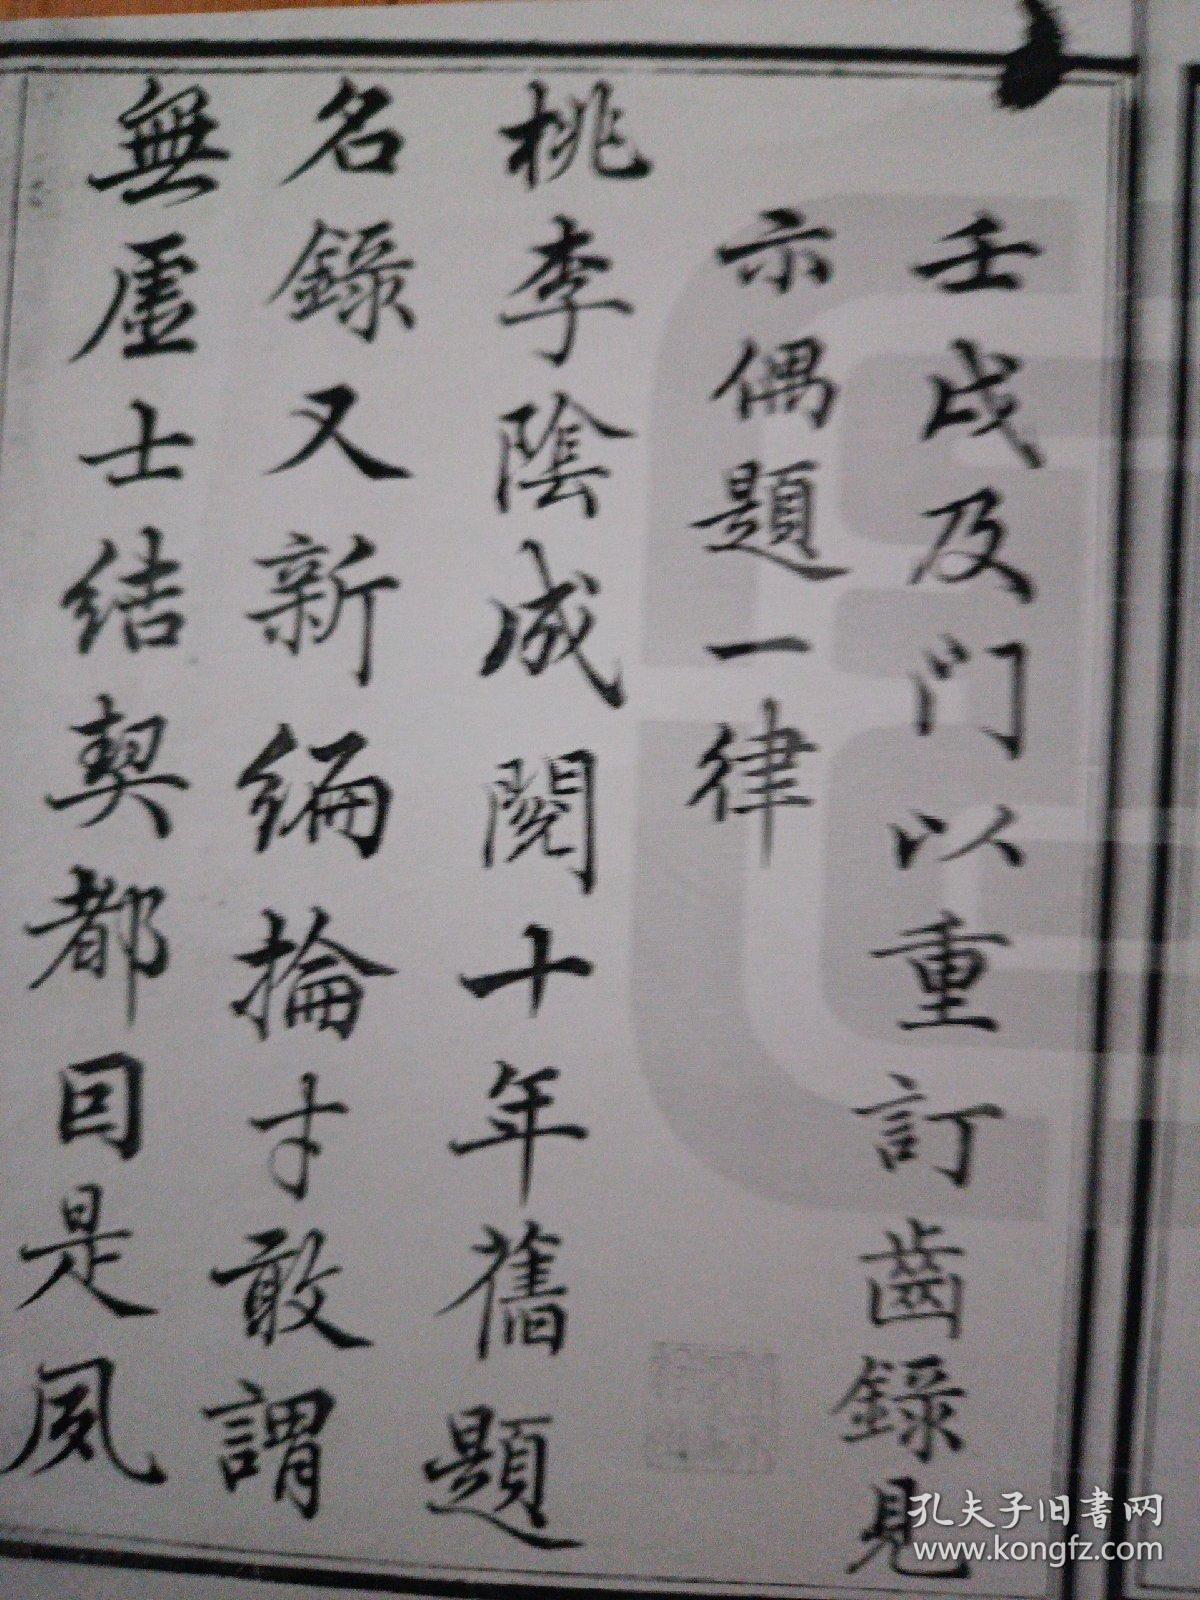 壬戌及門以重訂齒錄見
示偶題一律
桃李陰成閱十年舊題
名錄又新編掄才敢謂
無虛士結契都因是夙
孔夫子旧書网
www.kongfz.com